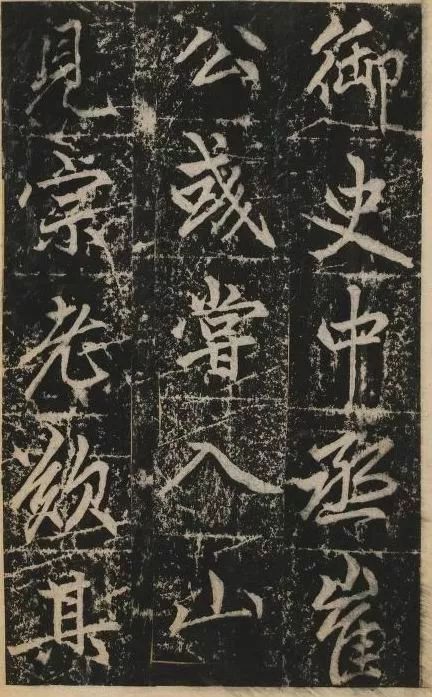 御史中丞崔
公彧嘗入山
見宗老歎其